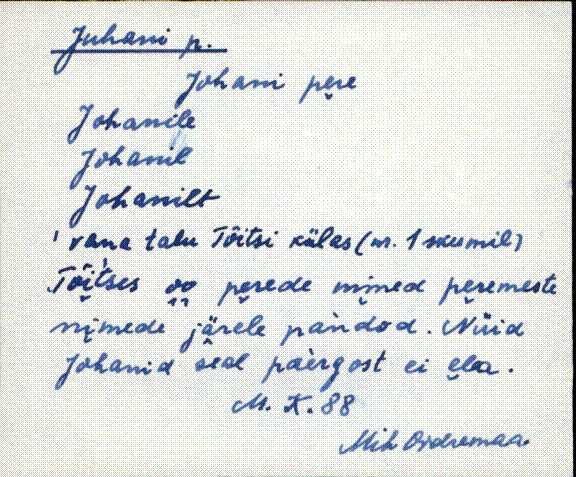 Juhani p.
Johani pere
Johanile
Johanil
Johanilt
' vana talu Tõitsi külas (nr. 1 skeemil)
Tõitses oo perede nimed peremeste
nimede järele pandod. Nüid
Johanid seal paergost ei ela.
M. K. 88
Mih Oidremaa.